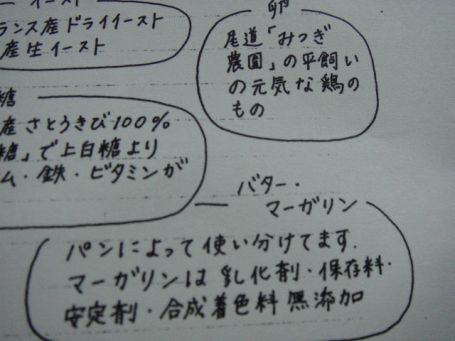 イースト
ランス産ドライイースト
産生イースト
卵
尾道「みつぎ
農園」の平飼い
の元気な鶏の
もの
糖
産さとうきび100%
糖」で上白糖より
ム・鉄・ビタミンが
バター・
マーガリン
パンによって使い分けてます.
マーガリンは乳化剤・保存料・
安定剤・合成着色料無添加